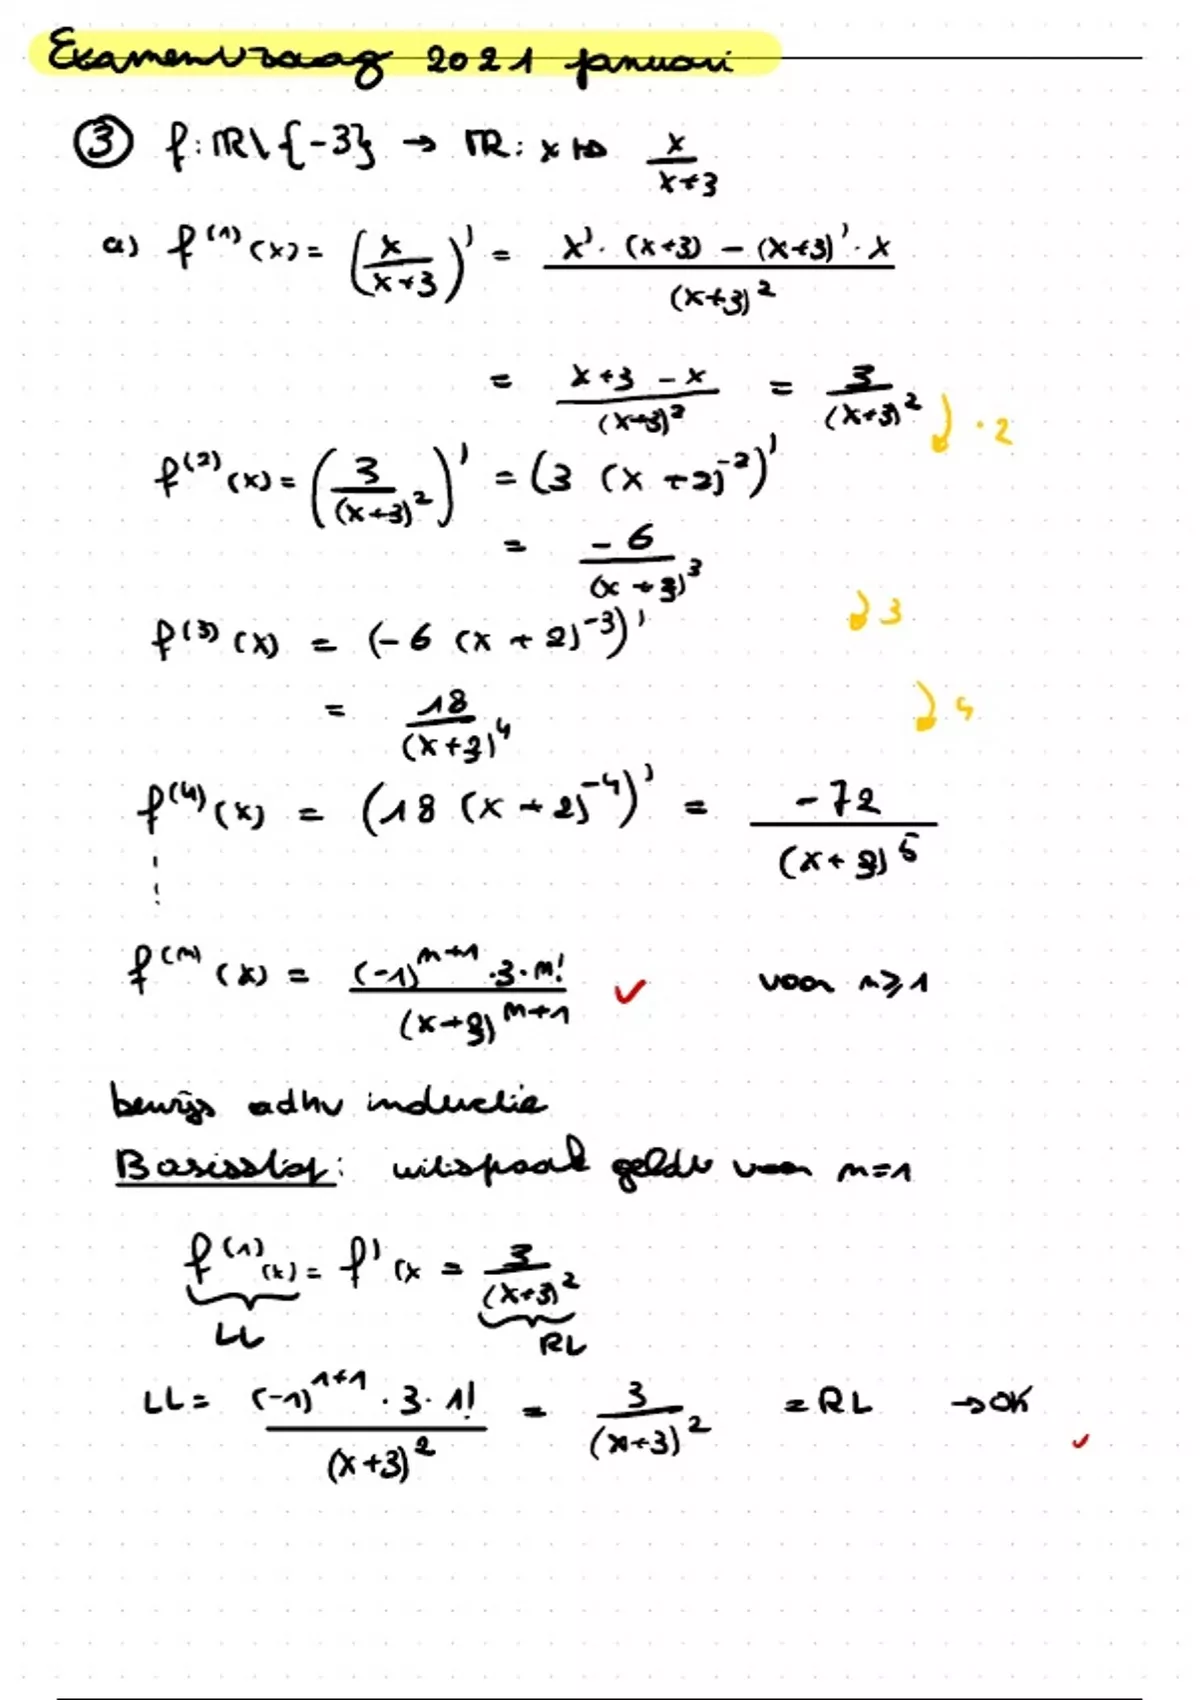 Examenvraag 2021 januari
③ f: ℝ\{-3} → ℝ: x ↦ x/(x+3)
a) f^(1)(x) = (x/(x+3))' = (x'·(x+3) - (x+3)'·x)/(x+3)^2
= (x+3-x)/(x+3)^2 = 3/(x+3)^2
·2
f^(2)(x) = (3/(x+3)^2)' = (3 (x+2)^-2)'
= -6/(x+3)^3
3
f^(3)(x) = (-6 (x+2)^-3)'
= 18/(x+3)^4
4
f^(4)(x) = (18 (x+2)^-4)' = -72/(x+3)^5
⋮
f^(n)(x) = ((-1)^(n+1)·3·n!)/(x+3)^(n+1) ✓ voor n≥1
bewijs adhv inductie
Basisstap: uitspraak geldt voor n=1
f^(1)(x) = f'(x = 3/(x+3)^2
LL RL
LL = ((-1)^(1+1)·3·1!)/(x+3)^2 = 3/(x+3)^2 = RL → OK ✓